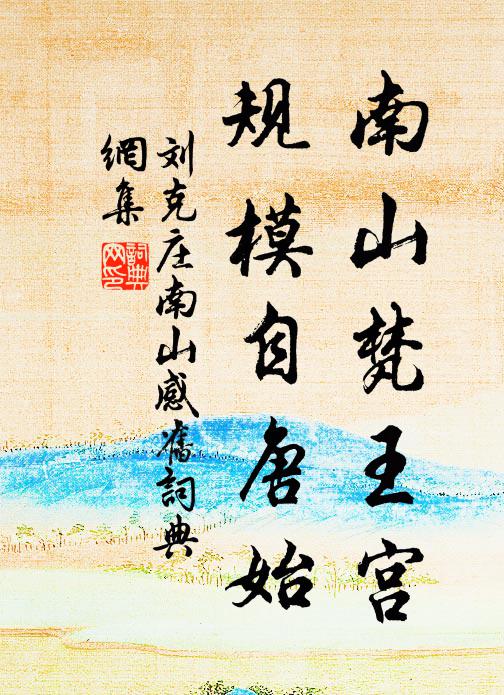 南山梵王宫
规模自唐始
刘克庄南山感舊詞典
網集
詞典
网印